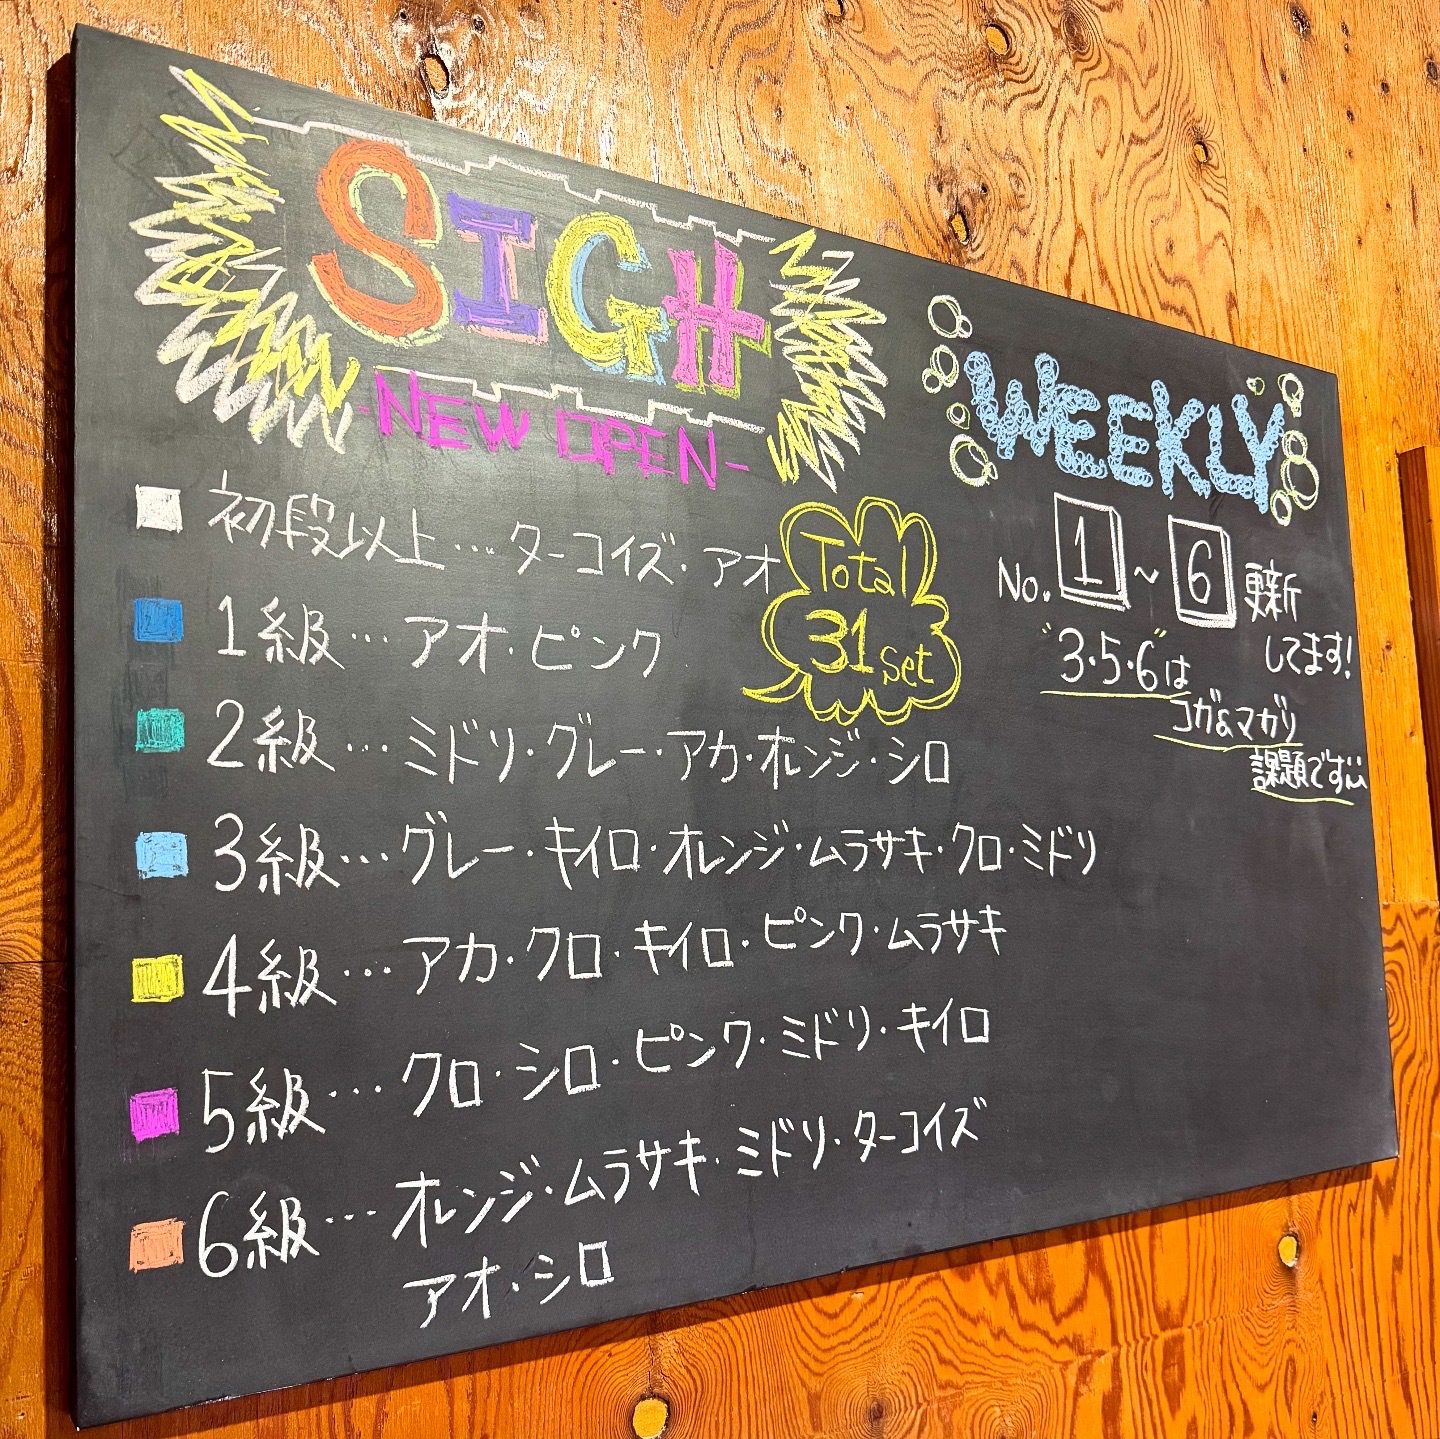 SIGH
-NEW OPEN-
初段以上…ターコイズ・アオ
1級…アオ・ピンク
2級…ミドリ・グレー・アカ・オレンジ・シロ
3級…グレー・キイロ・オレンジ・ムラサキ・クロ・ミドリ
4級…アカ・クロ・キイロ・ピンク・ムラサキ
5級…クロ・シロ・ピンク・ミドリ・キイロ
6級…オレンジ・ムラサキ・ミドリ・ターコイズ
アオ・シロ
Total
31 set
WEEKLY
No. 1 ~ 6 更新
してます!
"3・5・6"は
コガ&マガリ
課題です